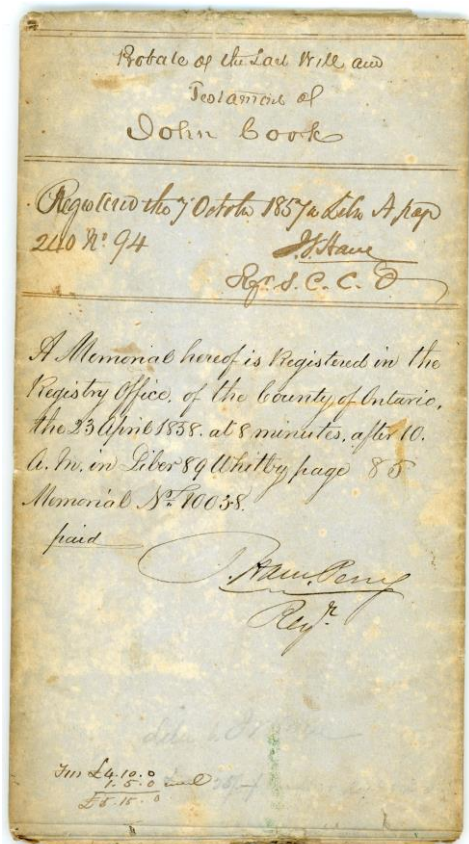 Probate of the Last Will and
Testament of
John Cook
Registered the 7 October 1857 in Libr A page
240 No. 94
Regr. S. C. C. O
A Memorial hereof is Registered in the
Registry Office, of the County of Ontario,
the 23 April 1858. at 8 minutes, after 10.
A. M. in Liber 89 Whitby page 85
Memorial No. 10038.
paid
J. Ham. Perry
Regr.
£4.10.0
1.5.0
£5.15.0